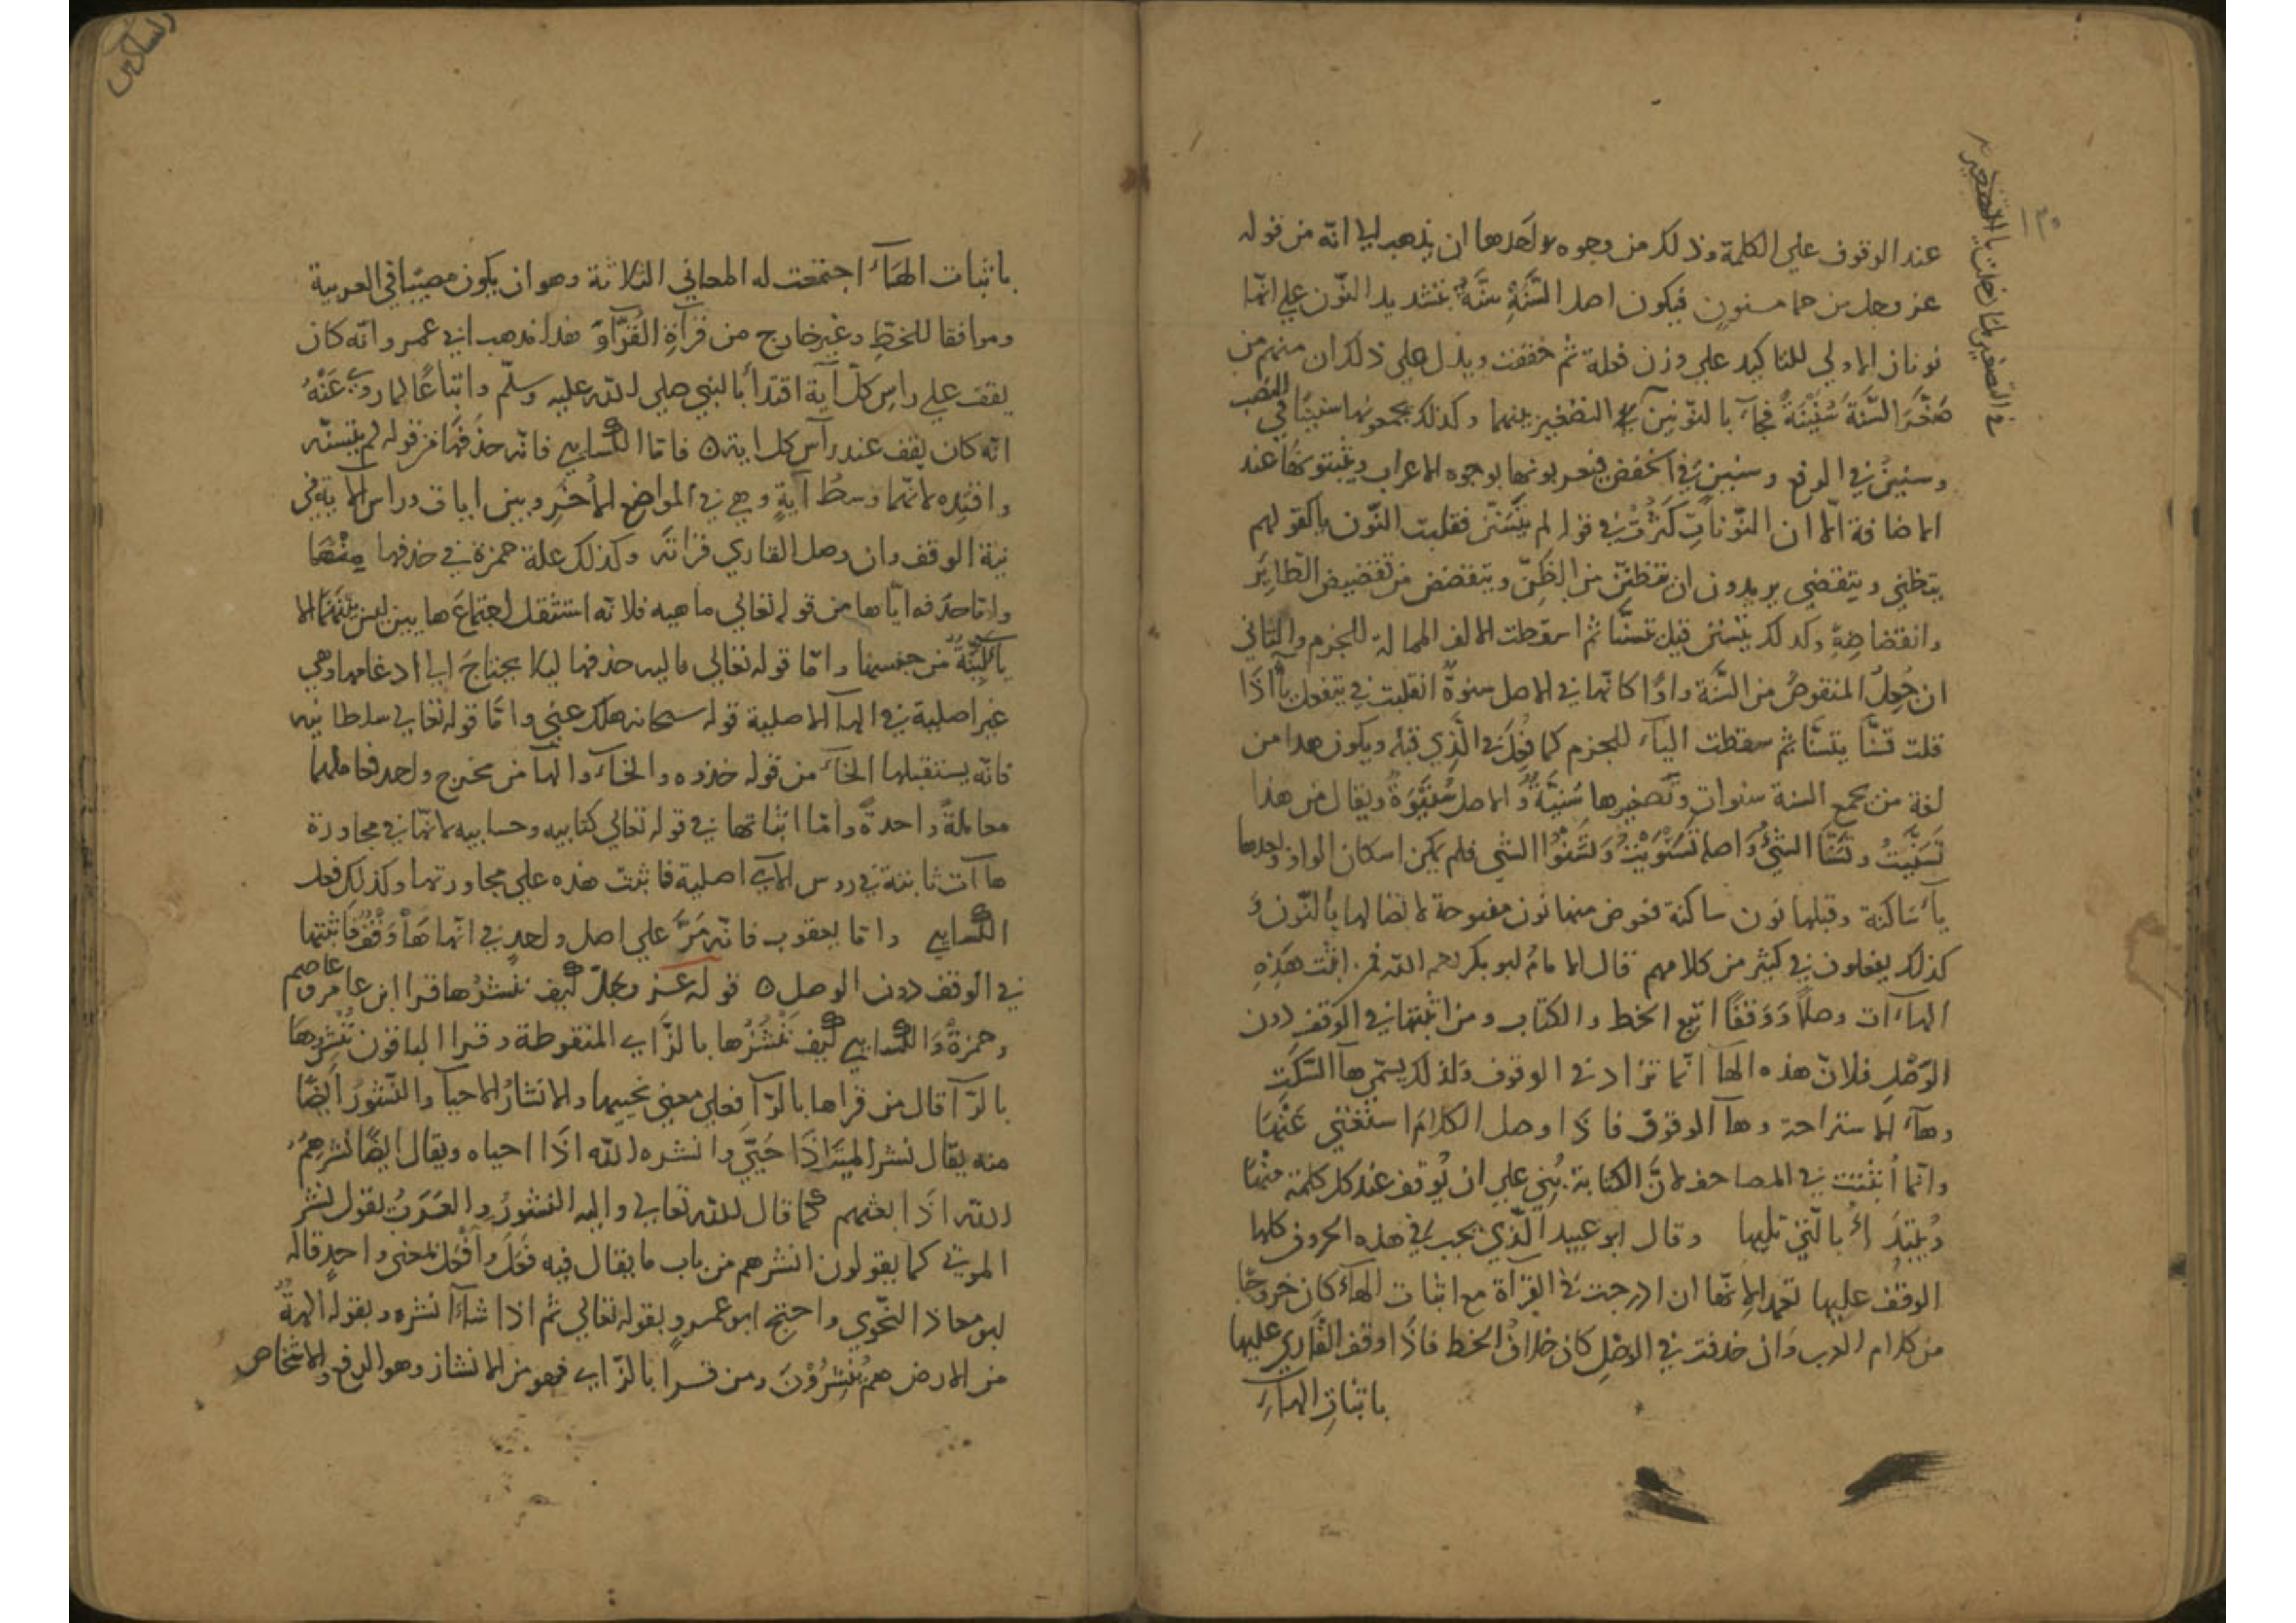 عند الوقوف علي الكلمة وذلك من وجوه احدها ان يذهب الي انه من قوله
عز وجل من حما مسنون فيكون اصل السَّنَةِ سَنَّةٌ بتشديد النّون علي انّها
نونان الاولي للتاكيد علي وزن فعلة ثم خففت ويدل علي ذلك ان منهم من
صَغَّرَ السَّنَةَ سُنَيْنَةً فجآء بالنّونين في التصغير بينهما وكذلك يجمعونها سنينًا في النصب
وسنينٌ في الرفع وسنينٍ في الخفض فيعربونها بوجوه الاعراب ويثبتونها عند
الاضافة الّا ان النّوناتِ كَثُرَتْ في قوله لم يتسنّن فقلبت النّون يا كقولهم
يتظنّي ويتقضي يريدون ان يتظنّن من الظنّ ويتقضض من تقضيض الطّاير
وانقضاضه وكذلك يتسنن قيل تسنّا ثم اسقطت الالف الممالة للجزم والثاني
ان جُعِلَ المنقوصُ من السَّنَة واوًا كانّها في الاصل سنوةٌ انقلبت في يتفعل يآ اذا
قلت تسنَّا يتسنَّا ثم سقطت اليآء للجزم كما فُعِلَ في الَّذي قبله ويكون هذا من
لغة من يجمع السنة سنوات وتصغيرها سُنَيَّةٌ والاصل سُنَيْوَةٌ ويقال من هذا
تَسَنَّيتُ وتَسَنَّا الشيُّ واصله تَسَنَّوَيْتُ وتَسَنَّوُا الشي فلم يمكن اسكان الواو وبعدها
يآء ساكنة وقبلها نون ساكنة فعوض منها نون مفتوحة لاتصالها بالنّون و
كذلك يفعلون في كثير من كلامهم قال الامام ابو بكر رحمه اللّه فمن اثبت هذه
الهاءات وصلًا وَوَقفًا اتبع الخط والكتاب ومن اثبتها في الوقف دون
الوَصْلِ فلانّ هذه الهآ انّما تزاد في الوقوف ولذلك يسمّي هآ السَّكتِ
وهآء الاستراحة وهآ الوقوف فاذا وصل الكلام استغني عَنْهَا
وانّما اُثبتت في المصاحف لانَّ الكتابة بُنِي علي ان يُوقف عند كل كلمة منها
ويُبتدَأُ بالّتي تليها وقال ابو عبيد الّذي يجب في هذه الحروف كلها
الوقفُ عليها تعمدًا لانّها ان ادرجت في القرآة مع اثبات الهآء كان خروجًا
من كلام العرب وان حذفت في الوصلِ كان خلافُ الخط فاذا وقف القاري عليها
باثباتِ الهآءِ
في التصغير
باثبات الهَآء اجتمعت له المعاني الثلاثة وهو ان يكون مصيبا في العربية
وموافقا للخطِّ وغير خارج من قرآةِ القُرّآء هذا مذهب ابي عمرو انّه كان
يقف علي راسِ كلّ آية اقتدأً بالنبي صلي اللّه عليه وسلّم واتباعًا لما روي عَنْهُ
انّه كان يقف عند رآس كل اية ٥ فامّا الكسايي فانّه حذفها من قوله لم يتسنّه
واقتده لانّهما وسطُ آيةٍ وهي في المواضع الاُخَرِ وبين ايات وراس الاية في
نية الوقف وان وصل القاري قراته وكذلك علة حمزة في حذفها منها
وامّا حذفه ايّاها من قوله تعالي ماهيه فلانّه استثقل اجتماع ها بين ليس بينهما الا
يآ ليّنةٌ من جنسهما وامّا قوله تعالي ماليه حذفها ليلا يحتاج الي ادغامها وهي
غير اصلية في الهآ الاصلية قوله سبحانه هلك عني وامّا قوله تعالي سلطانيه
فانّه يستقبلها الخآء من قوله خذوه والخآء والهآ من مخرج واحد فعاملهما
معاملةً واحدةً وامّا اثباتها في قوله تعالي كتابيه وحسابيه لانّها في مجاورة
هاآت ثابتة في روس الآي اصلية فاثبت هذه علي مجاورتها وكذلك فعل
الكسايي وامّا يعقوب فانّه مَرَّ علي اصل واحدٍ في انّها هآ وَقْفٍ فاثبتها
في الوقف دون الوصل ٥ قوله عز وجلّ كيف ننشزها قرا ابن عامر وعاصم
وحمزةُ والكسايي كيف نُنْشِزُها بالزّاي المنقوطة وقرا الباقون نُنْشِرُهَا
بالرّآ قال من قراها بالرّآ فعلي معني نحييها والانشارُ الاحيآ والنّشورُ ايضًا
منه يقال نشر الميّت اذا حَيِيَ وانشره اللّه اذا احياه ويقال ايضًا نشرهم
اللّه اذا بعثهم كما قال اللّه تعالي واليه النشورُ والعَرَبُ تقول نشر
الموتي كما يقولون انشرهم من باب ما يقال فيه فَعَلَ وأَفْعَلَ بمعني واحدٍ قاله
ابو معاذ النّحوي واحتج ابو عمرٍو بقوله تعالي ثم اذا شآء انشره وبقوله الهةٌ
من الارض هم يُنْشِرُوْنَ ومن قرا بالزّاي فهو من الانشاز وهو الرفع والاشخاص